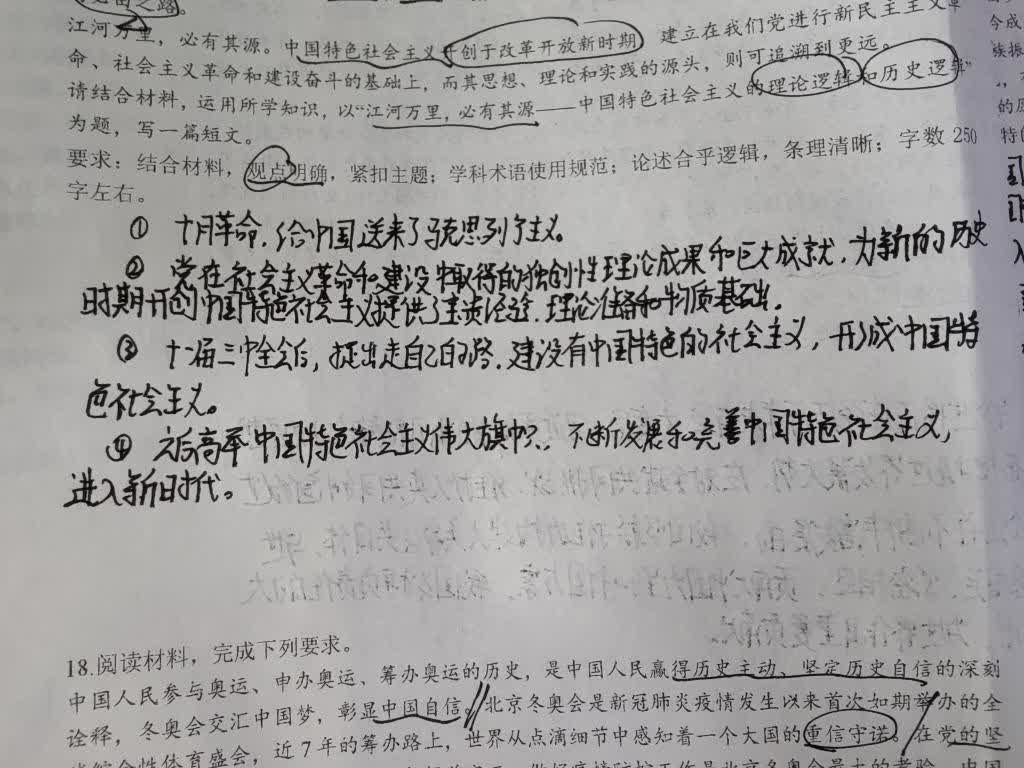 必由之路。
江河万里，必有其源。中国特色社会主义开创于改革开放新时期，建立在我们党进行新民主主义革
命、社会主义革命和建设奋斗的基础上，而其思想、理论和实践的源头，则可追溯到更远。
请结合材料，运用所学知识，以“江河万里，必有其源——中国特色社会主义的理论逻辑和历史逻辑”
为题，写一篇短文。
要求：结合材料，观点明确，紧扣主题；学科术语使用规范；论述合乎逻辑，条理清晰；字数 250
字左右。
① 十月革命，给中国送来了马克思列宁主义。
② 党在社会主义革命和建设中取得的独创性理论成果和巨大成就，为新的历史
时期开创中国特色社会主义提供了宝贵经验、理论准备和物质基础。
③ 十一届三中全会后，提出走自己的路，建设有中国特色的社会主义，形成中国特
色社会主义。
④ 之后高举中国特色社会主义伟大旗帜，不断发展和完善中国特色社会主义，
进入新时代。
18.阅读材料，完成下列要求。
中国人民参与奥运、申办奥运、筹办奥运的历史，是中国人民赢得历史主动、坚定历史自信的深刻
诠释，冬奥会交汇中国梦，彰显中国自信。北京冬奥会是新冠肺炎疫情发生以来首次如期举办的全
球综合性体育盛会，近 7 年的筹办路上，世界从点滴细节中感知着一个大国的重信守诺。在党的坚